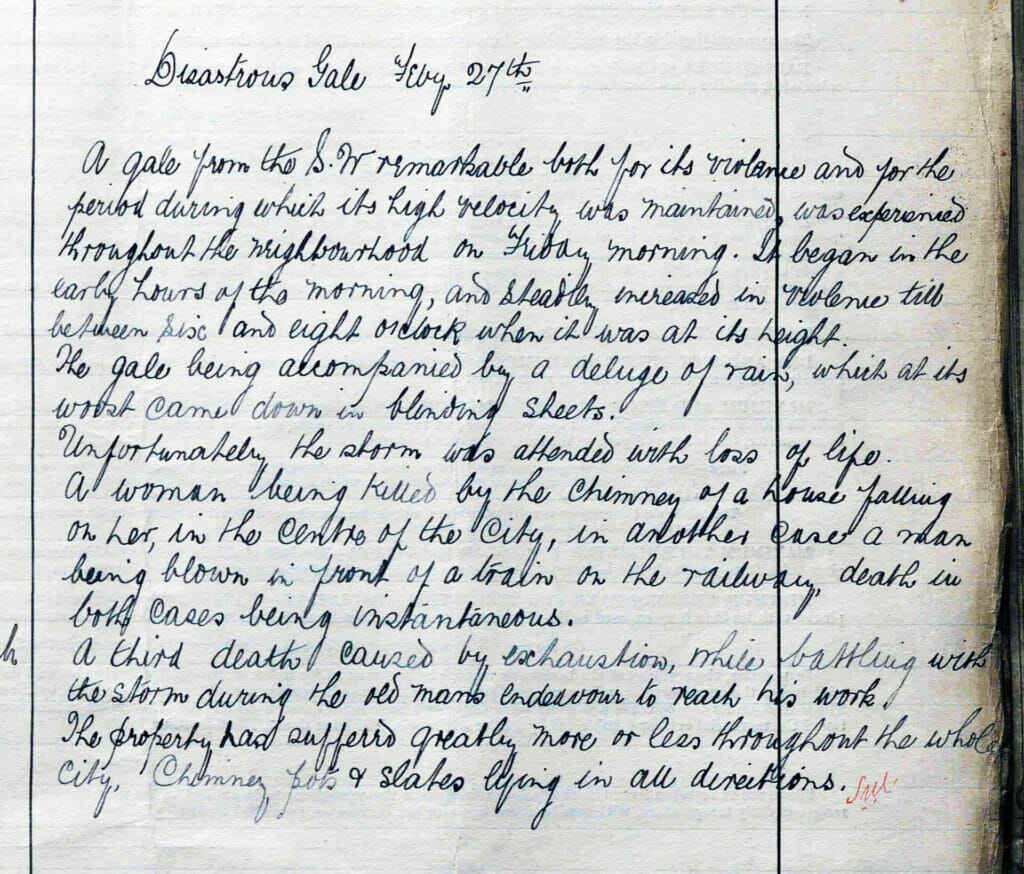 Disastrous Gale Feby. 27th
A gale from the S.W remarkable both for its violence and for the
period during which its high velocity was maintained, was experienced
throughout the neighbourhood on Friday morning. It began in the
early hours of the morning, and steadily increased in violence till
between six and eight o'clock when it was at its height.
The gale being accompanied by a deluge of rain, which at its
worst came down in blinding sheets.
Unfortunately the storm was attended with loss of life.
A woman being killed by the chimney of a house falling
on her, in the centre of the City, in another case a man
being blown in front of a train on the railway, death in
both cases being instantaneous.
h
A third death caused by exhaustion, while battling with
the storm during the old mans endeavour to reach his work.
The property has sufferd greatly more or less throughout the whole
City, Chimney pots & slates lying in all directions.